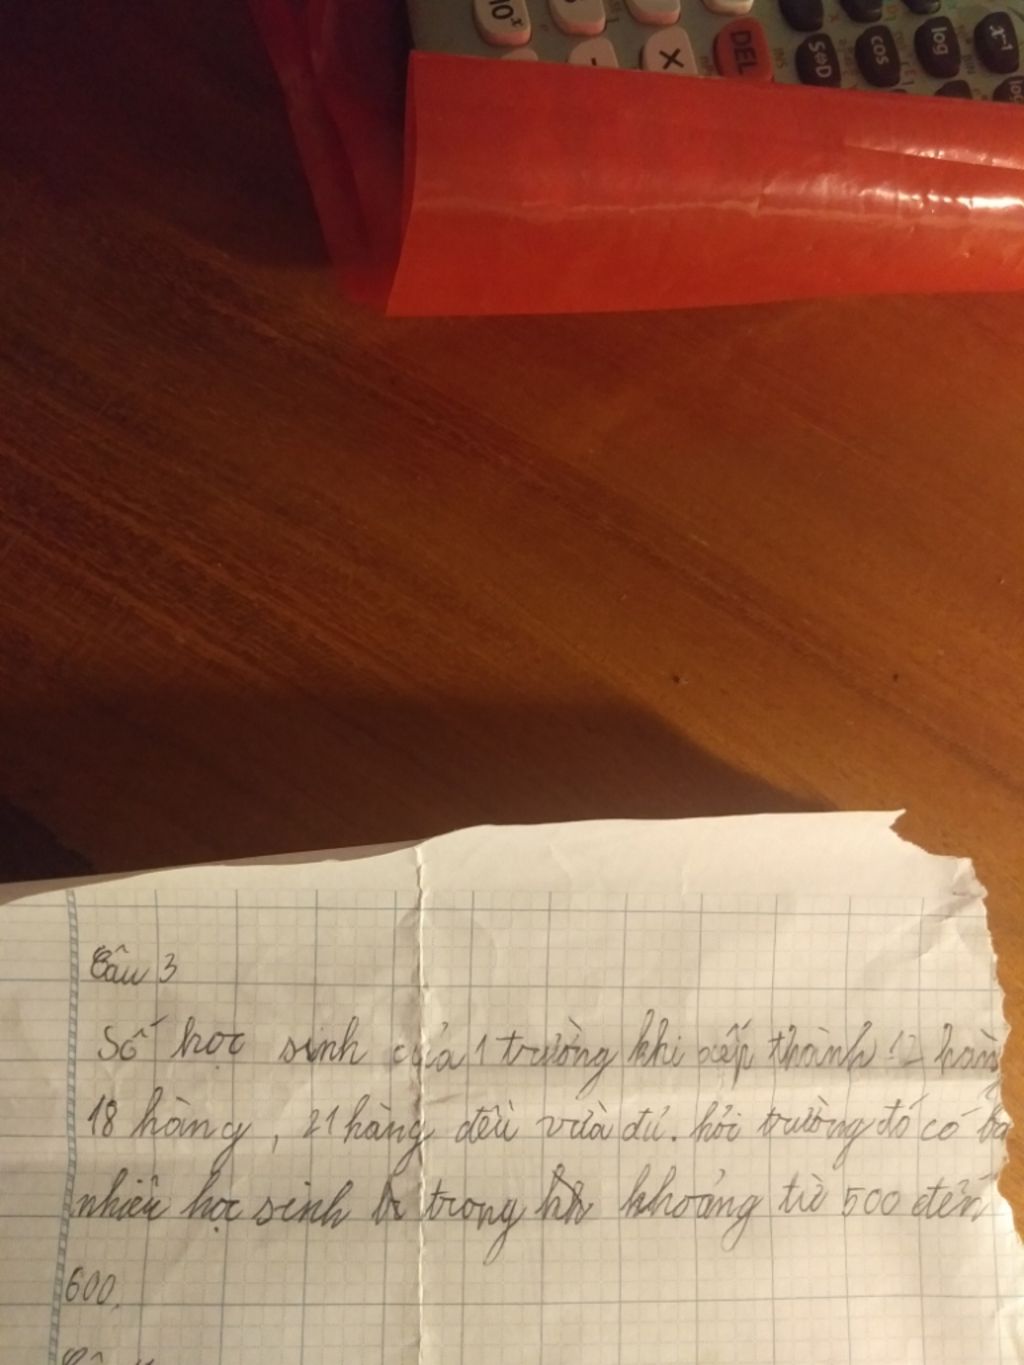 10ˣ
×
DEL
S⇔D
cos
log
x⁻¹
Câu 3
Số học sinh của 1 trường khi xếp thành 12 hàng
18 hàng, 21 hàng đều vừa đủ. hỏi trường đó có ba
nhiêu học sinh trong khoảng từ 500 đến
600.